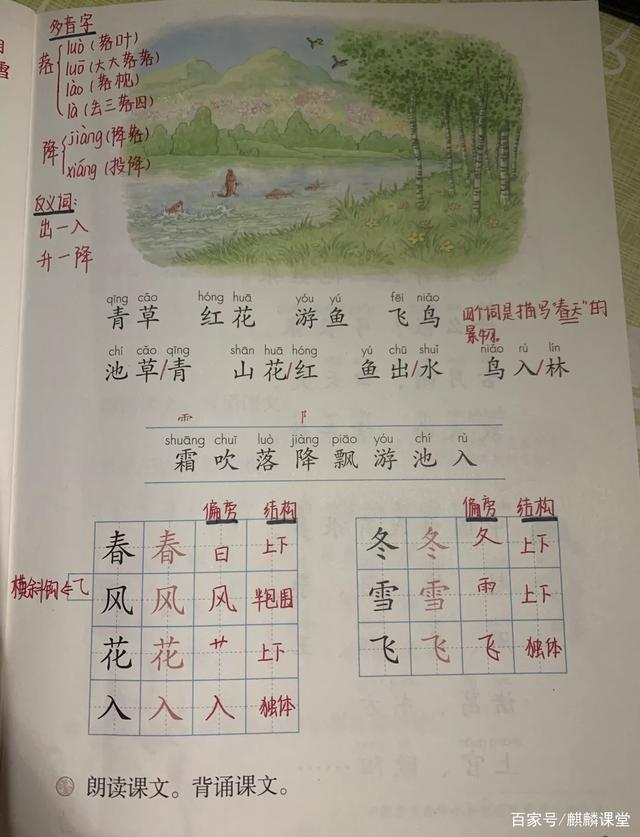 多音字
落
luò(落叶)
luō(大大落落)
lào(落枕)
là(丢三落四)
降
jiàng(降落)
xiáng(投降)
反义词:
出—入
升—降
qīng cǎo hóng huā yóu yú fēi niǎo
青草 红花 游鱼 飞鸟
四个词是描写“春天”的
景物。
chí cǎo qīng shān huā hóng yú chū shuǐ niǎo rù lín
池草/青 山花/红 鱼出/水 鸟入/林
⻗ 阝
shuāng chuī luò jiàng piāo yóu chí rù
霜吹落降飘游池入
偏旁 结构
春 春 日 上下
横斜钩⇐⺄
风 风 风 半包围
花 花 艹 上下
入 入 入 独体
偏旁 结构
冬 冬 夂 上下
雪 雪 ⻗ 上下
飞 飞 飞 独体
朗读课文。背诵课文。
百家号/麒麟课堂